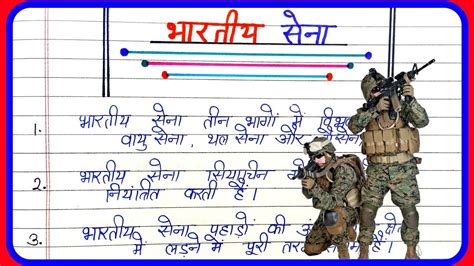 भारतीय सेना
1. भारतीय सेना तीन भागों में
वायु सेना, थल सेना और
2. भारतीय सेना सियाचीन
नियंतीत करती है।
3. भारतीय सेना पहाड़ों की
में लड़ने में पूरी है।